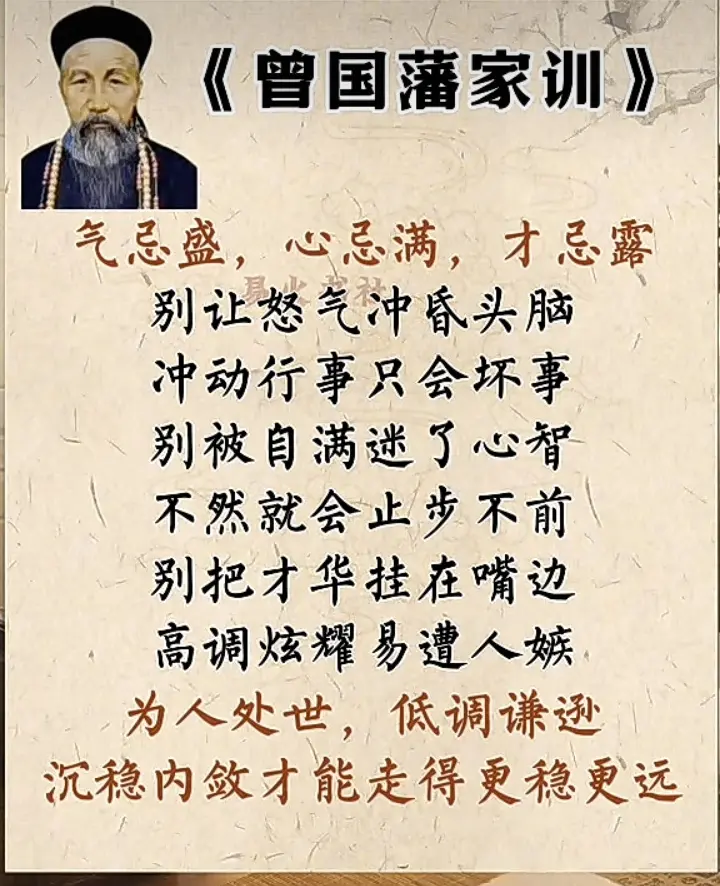 《曾国藩家训》
气忌盛，心忌满，才忌露
别让怒气冲昏头脑
冲动行事只会坏事
别被自满迷了心智
不然就会止步不前
别把才华挂在嘴边
高调炫耀易遭人嫉
为人处世，低调谦逊
沉稳内敛才能走得更稳更远